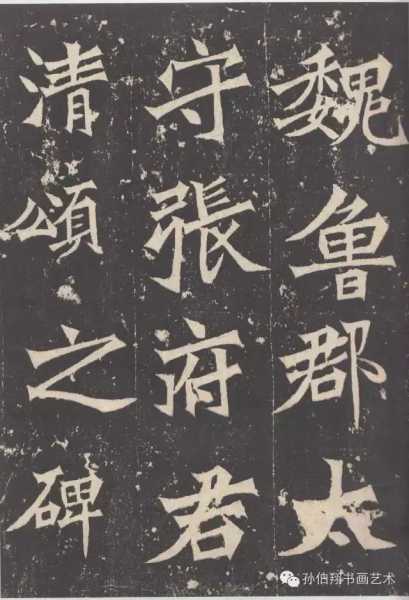 魏魯郡太
守張府君
清頌之碑
孙伯翔书画艺术